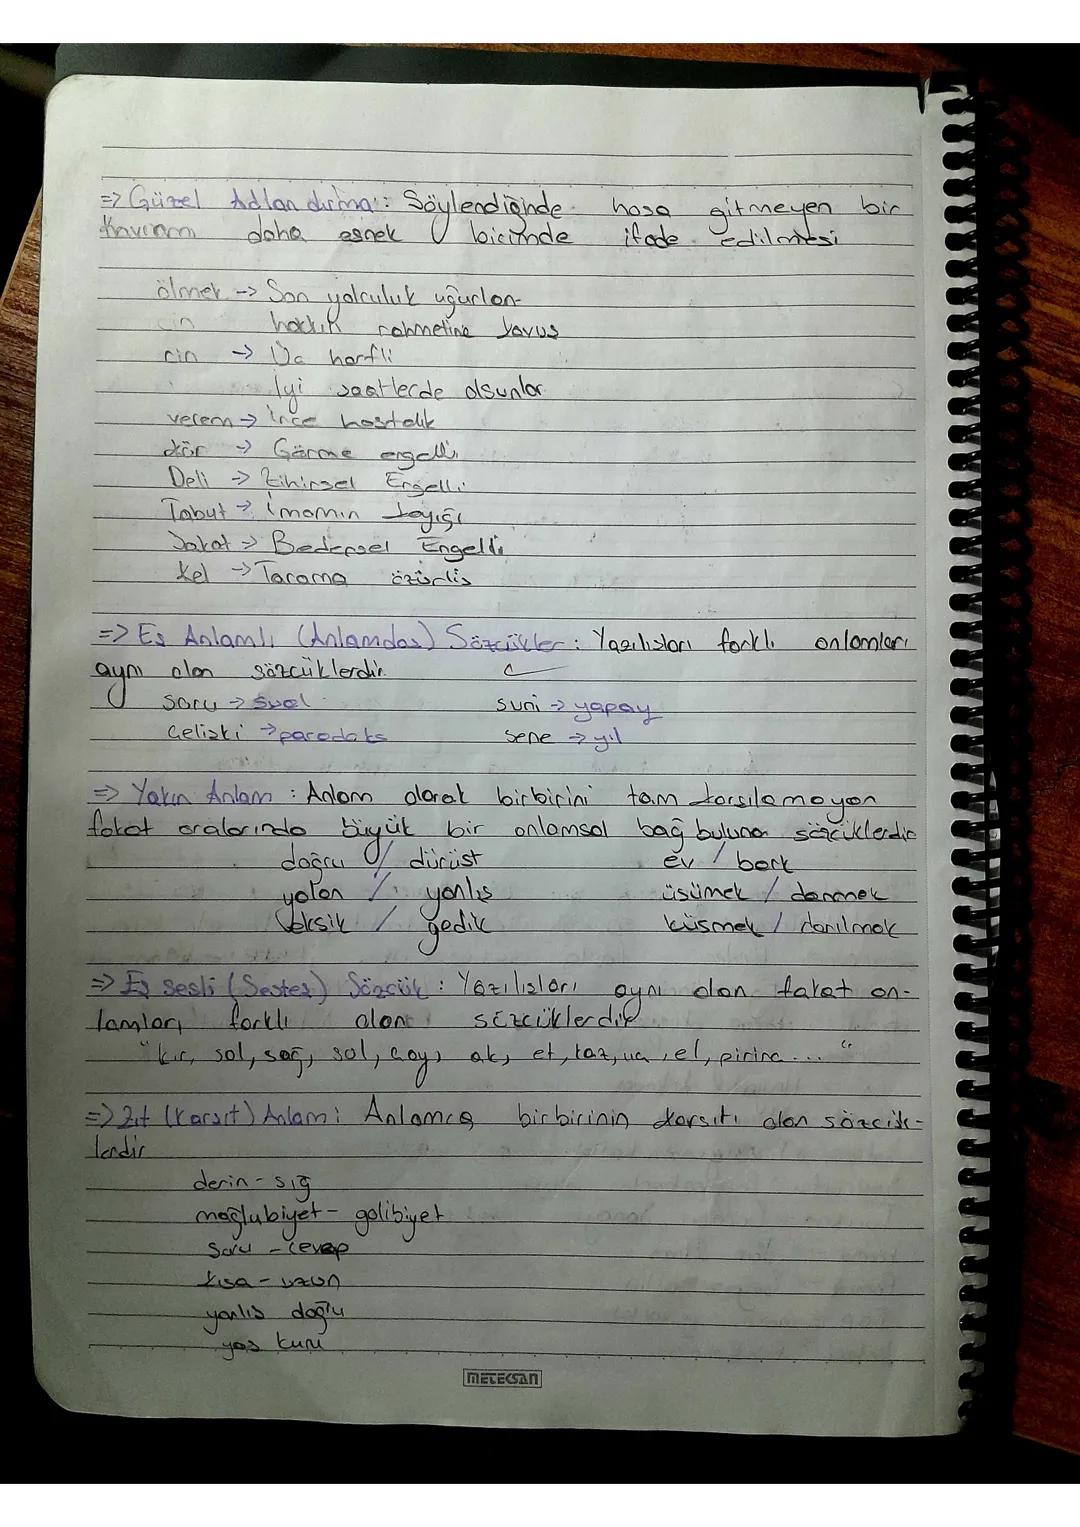 => Güzel Adlandırma : Söylendiğinde hoşa gitmeyen bir
Kavram daha esnek biçimde ifade edilmesi
ölmek -> Son yolculuk uğurlan-
hakkın rahmetine kavuş
cin -> Üç harfli
İyi saatlerde olsunlar
verem -> ince hastalık
kör -> Görme engelli
Deli -> Zihinsel Engelli
Tabut -> İmamın kayığı
Sakat -> Bedensel Engelli
Kel -> Tarama özürlü
=> Eş Anlamlı (Anlamdaş) Sözcükler : Yazılışları farklı anlamları
aynı olan sözcüklerdir.
Soru -> sual suni -> yapay
Çelişki -> paradoks sene -> yıl
=> Yakın Anlam : Anlam olarak birbirini tam karşılamayan
fakat aralarında büyük bir anlamsal bağ bulunan sözcüklerdir
doğru / dürüst ev / bark
yalan / yanlış üşümek / donmak
eksik / gedik küsmek / darılmak
=> Eş sesli (Sesteş) Sözcük : Yazılışları aynı olan fakat an-
lamları farklı olan sözcüklerdir
"kır, sol, sağ, sol, çay, ak, et, kaz, el, pirinç ... "
=> Zıt (Karşıt) Anlam : Anlamca birbirinin karşıtı olan sözcük-
lerdir
derin - sığ
mağlubiyet - galibiyet
Soru - cevap
kısa - uzun
yanlış doğru
yaş kuru
METEKSAN